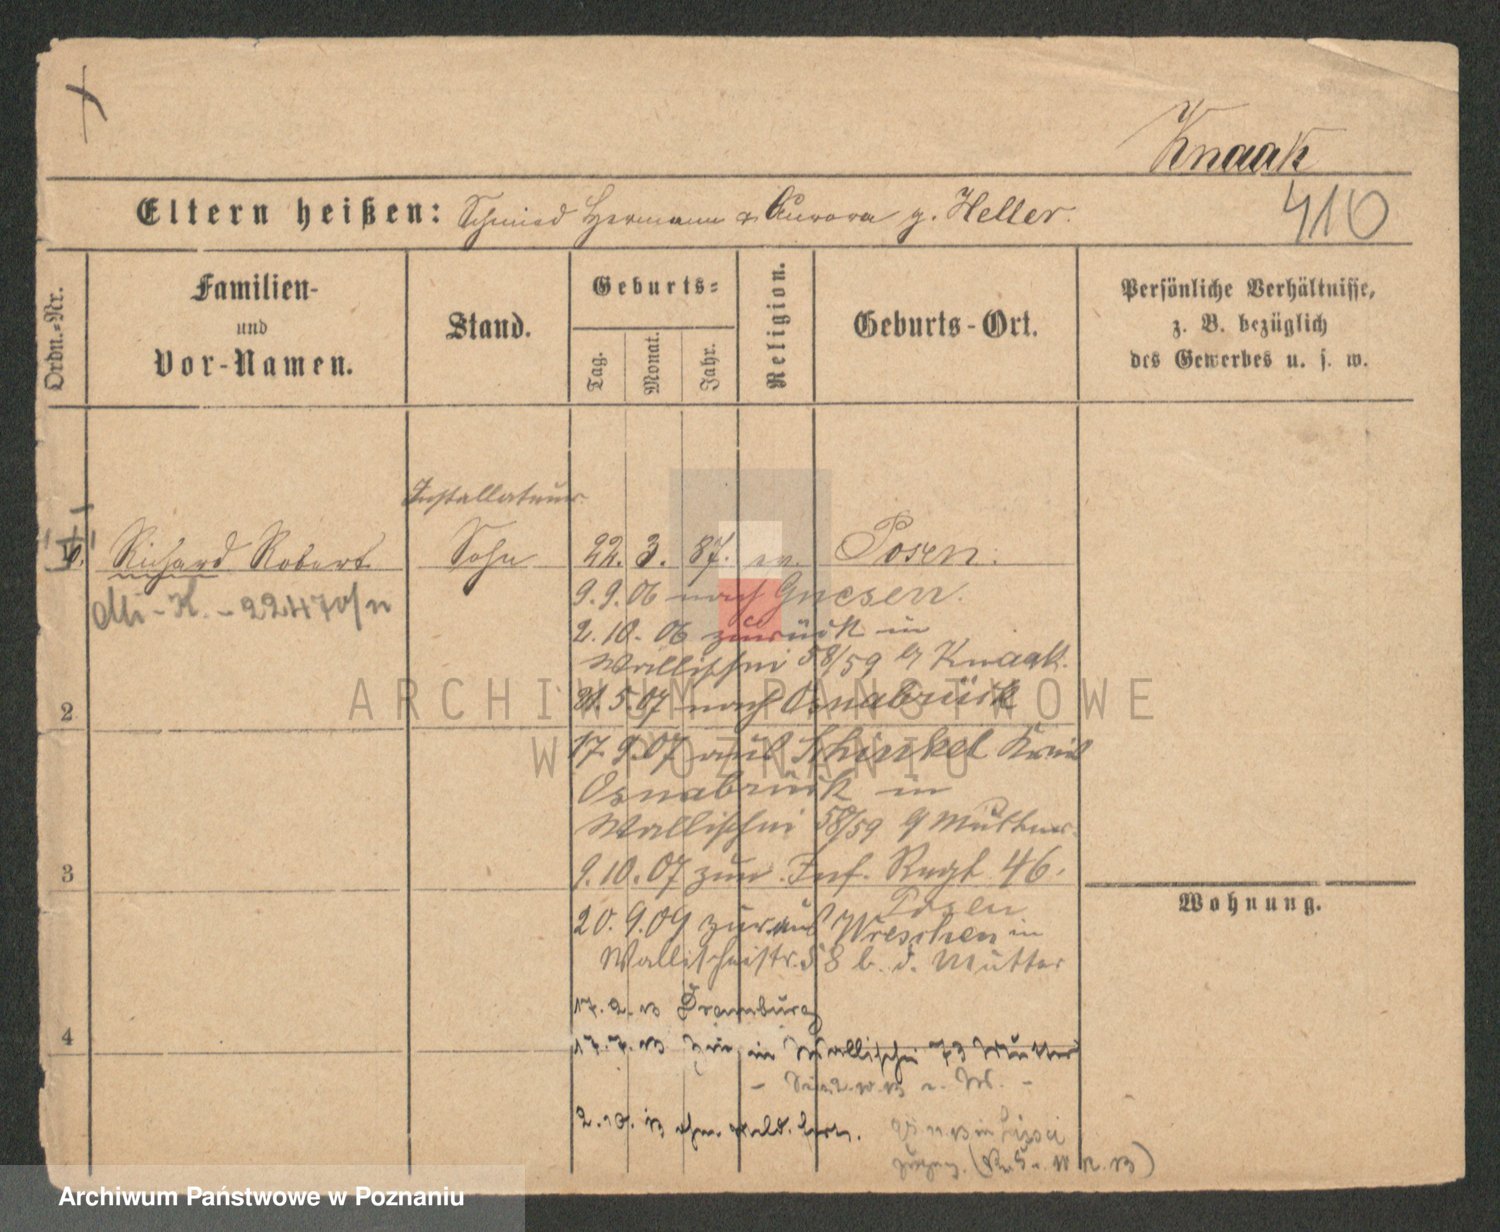 Knaak
Eltern heißen: Schmied Hermann & Aurora g. Heller.
410
Ordn.-Nr.
Familien-
und
Vor-Namen.
Stand.
Geburts-
Tag.
Monat.
Jahr.
Religion.
Geburts-Ort.
Persönliche Verhältnisse,
z. B. bezüglich
des Gewerbes u. s. w.
Installateur
Richard Robert Sohn 22. 3. 87. ev. Posen.
Mi-K. - 22470/11
9.9.06 nach Gnesen.
2.10.06 zurück in
Wallischei 58/59 b/ Knaak.
5.07 nach Osnabrück
2
17.9.07 aus Schinkel Kreis
Osnabrück in
Wallischei 58/59 b/ Mutter.
9.10.07 zum Inf. Regt. 46.
3
Posen
Wohnung.
20.9.09 zur aus Wreschen in
Wallischeistr. 58 b. d. Mutter
17.2.13 Dramburg
4
17.7.13 zur. in Wallischei 73 Mutter
2.10.13 ohne
ARCHIWUM PAŃSTWOWE
W POZNANIU
Archiwum Państwowe w Poznaniu